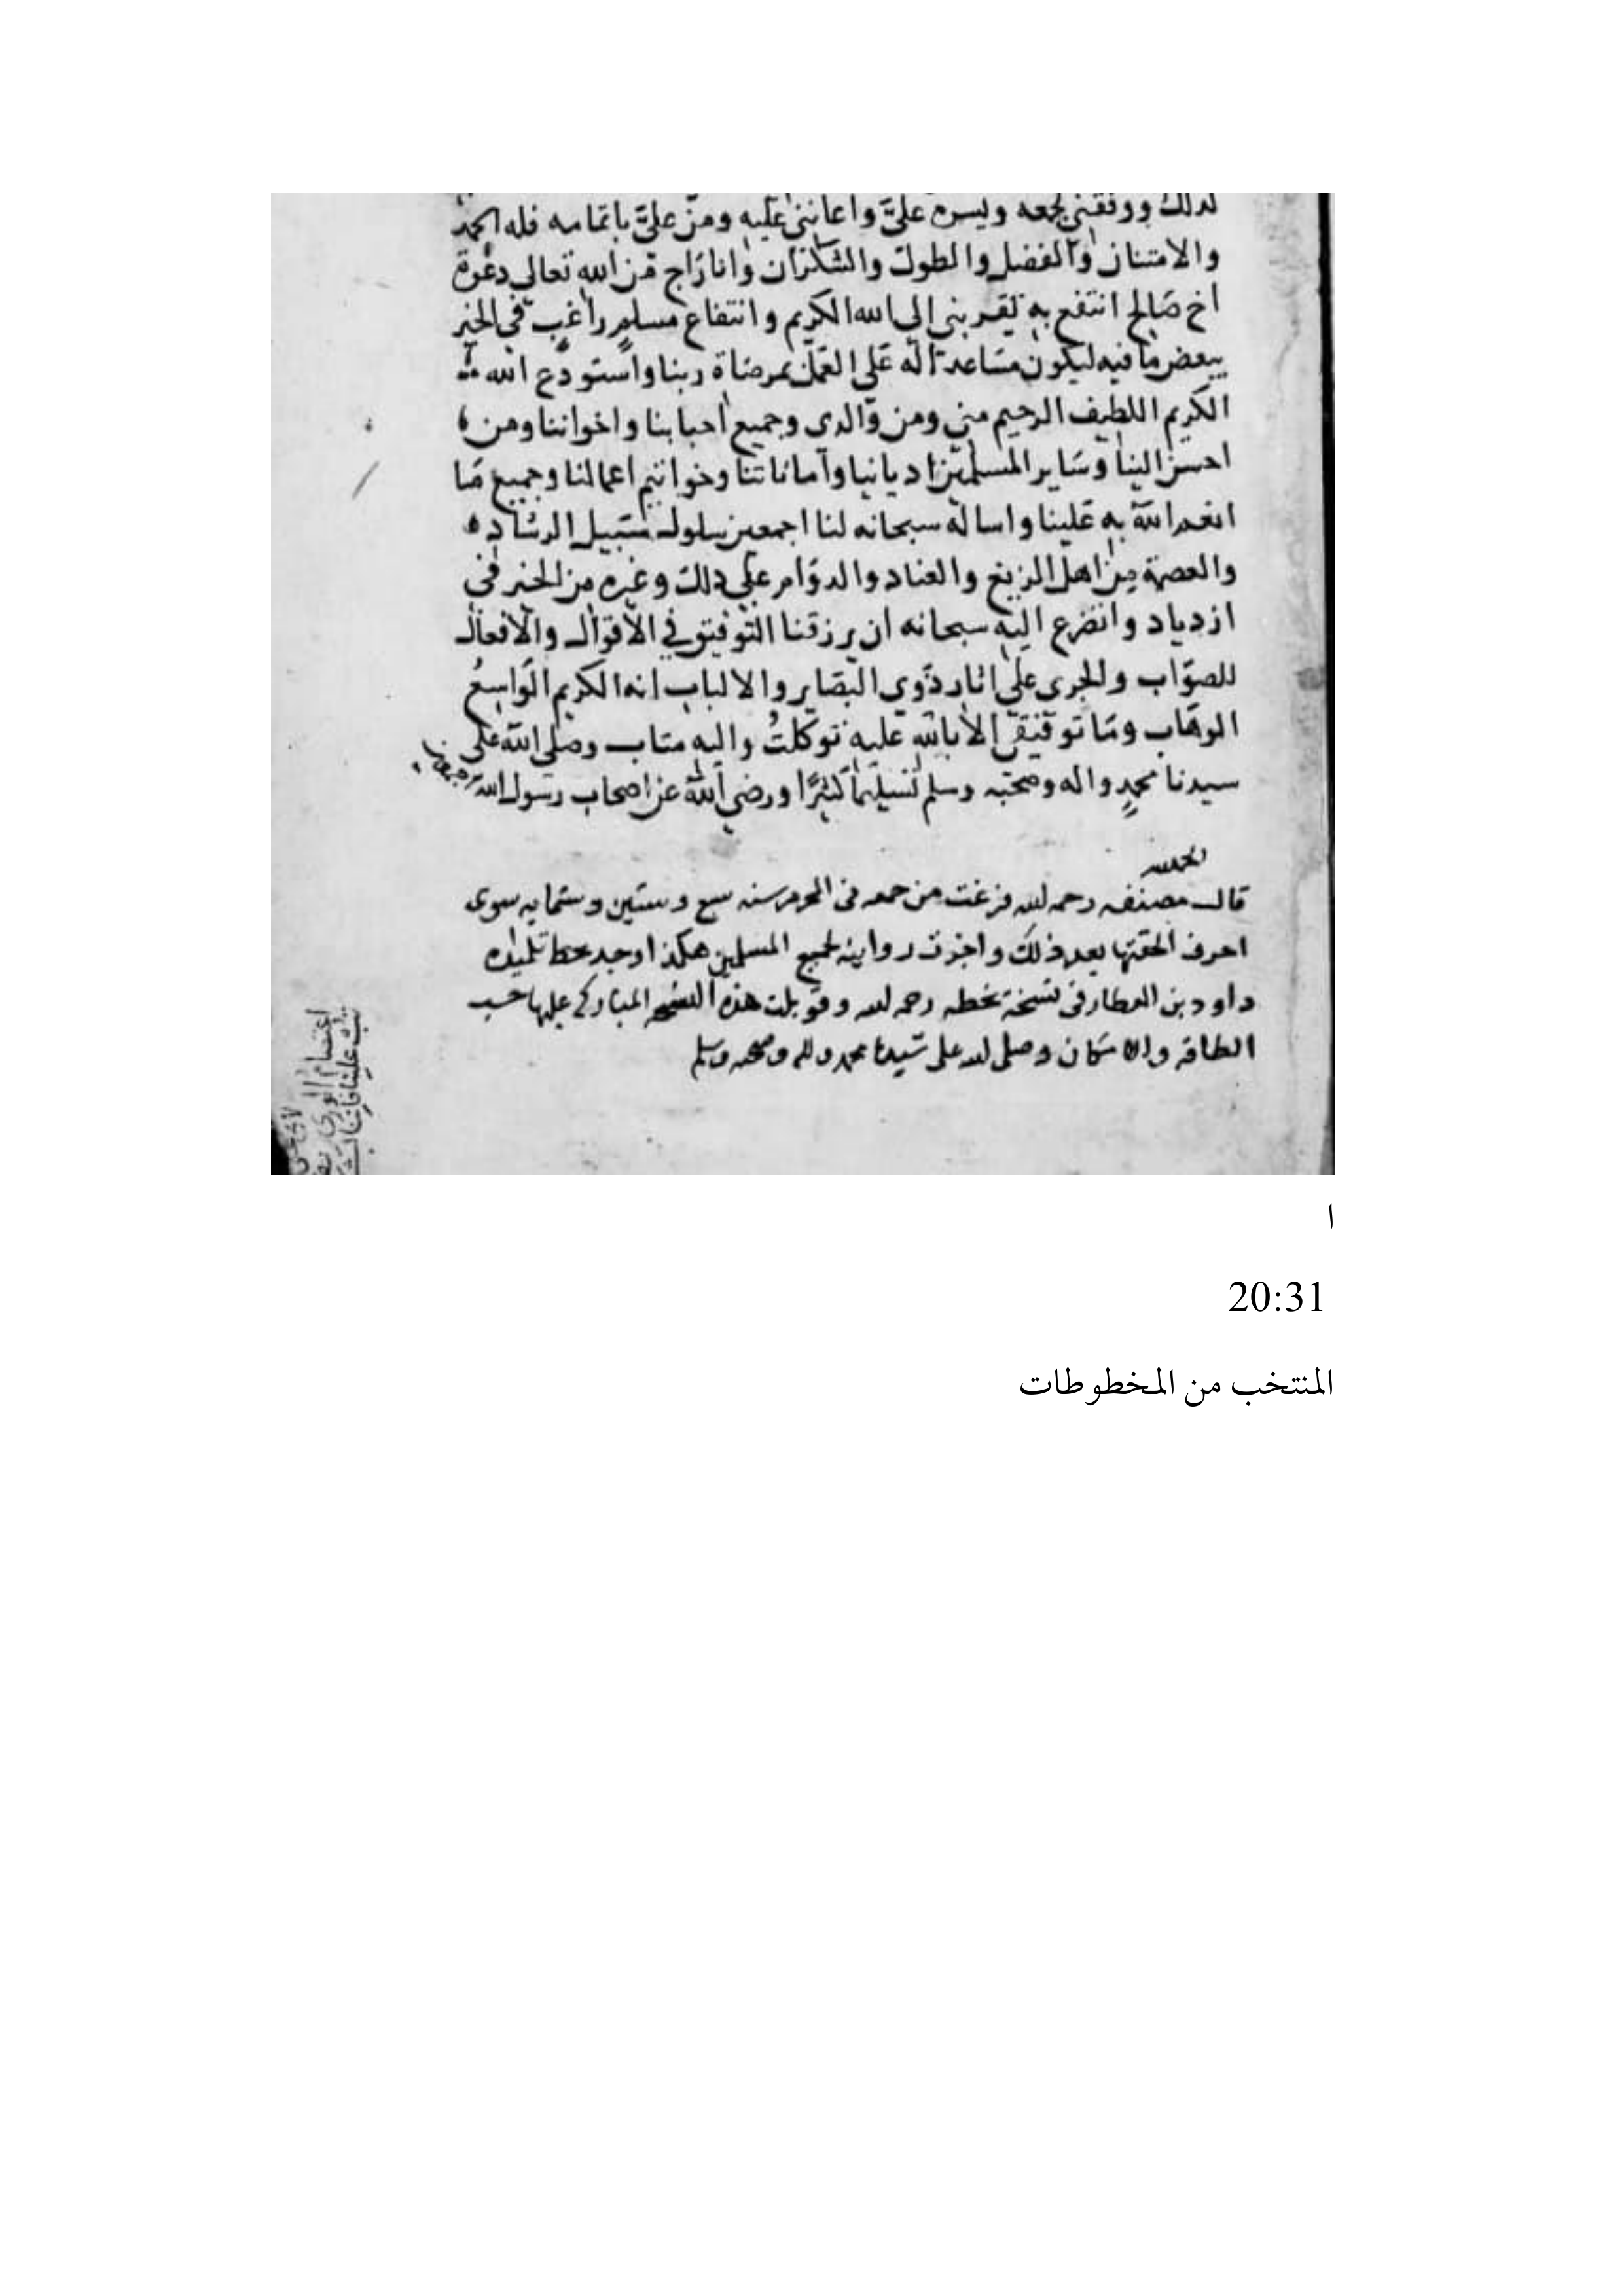 لذلك ووفقني لجمعه ويسره عليَّ واعانني عليه ومنّ عليَّ باتمامه فله الحمد
والامتنان والفضل والطول والشكران وانا راج من الله تعالى دعوة
اخ صالح انتفع به تقربني الى الله الكريم وانتفاع مسلم راغب في الخير
ببعض ما فيه ليكون مساعدة له على العمل بمرضاة ربنا واستودع الله
الكريم اللطيف الرحيم مني ومن والدى وجميع احبابنا واخواننا ومن
احسن الينا وساير المسلمين اديانيا واماناتنا وخواتيم اعمالنا وجميع ما
انعم الله به علينا واساله سبحانه لنا اجمعين سلوك سبيل الرشاد
والعصمة من اهل الزيغ والعناد والدوام على ذلك وغيره من الخير في
ازدياد واتضرع اليه سبحانه ان يرزقنا التوفيق في الاقوال والافعال
للصواب والجرى على اثار ذوي البصاير والالباب انه الكريم الواسعُ
الوهاب وما توفيقي الا بالله عليه توكلتُ واليه متاب وصلى الله على
سيدنا محمدٍ واله وصحبه وسلم تسليماً كثيرًا ورضي الله عن اصحاب رسول الله اجمعين
قال مصنفه رحمه الله فرغت من جمعه في المحرم سنه سبع وستين وستمايه سوى
احرف الحقتها بعد ذلك واجزت روايته لجميع المسلمين هكذا وجد بخط تلميذه
داود بن العطار في نسخة بخطه رحمه الله وقوبلت هذه النسخه المباركه عليها حسب
الطاقه والامكان وصلى الله على سيدنا محمد واله وصحبه وسلم
ا
20:31
المنتخب من المخطوطات